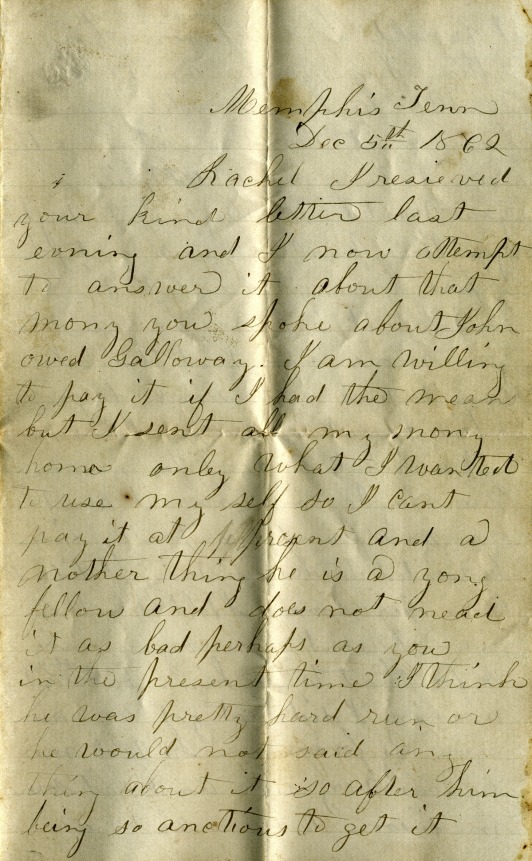 Memphis Tenn
Dec 5th 1862
Rachel I resieved
your kind letter last
evening and I now attempt
to answer it about that
mony you spoke about John
owed Galloway. I am willing
to pay it if I had the mean
but I sent all my mony
home onley what I wanted
to use my self so I cant
pay it at present and a
nother thing he is a yong
fellow and does not nead
it as bad perhaps as you
in the present time I think
he was pretty hard run or
he would not said any
thing about it so after him
being so anctious to get it